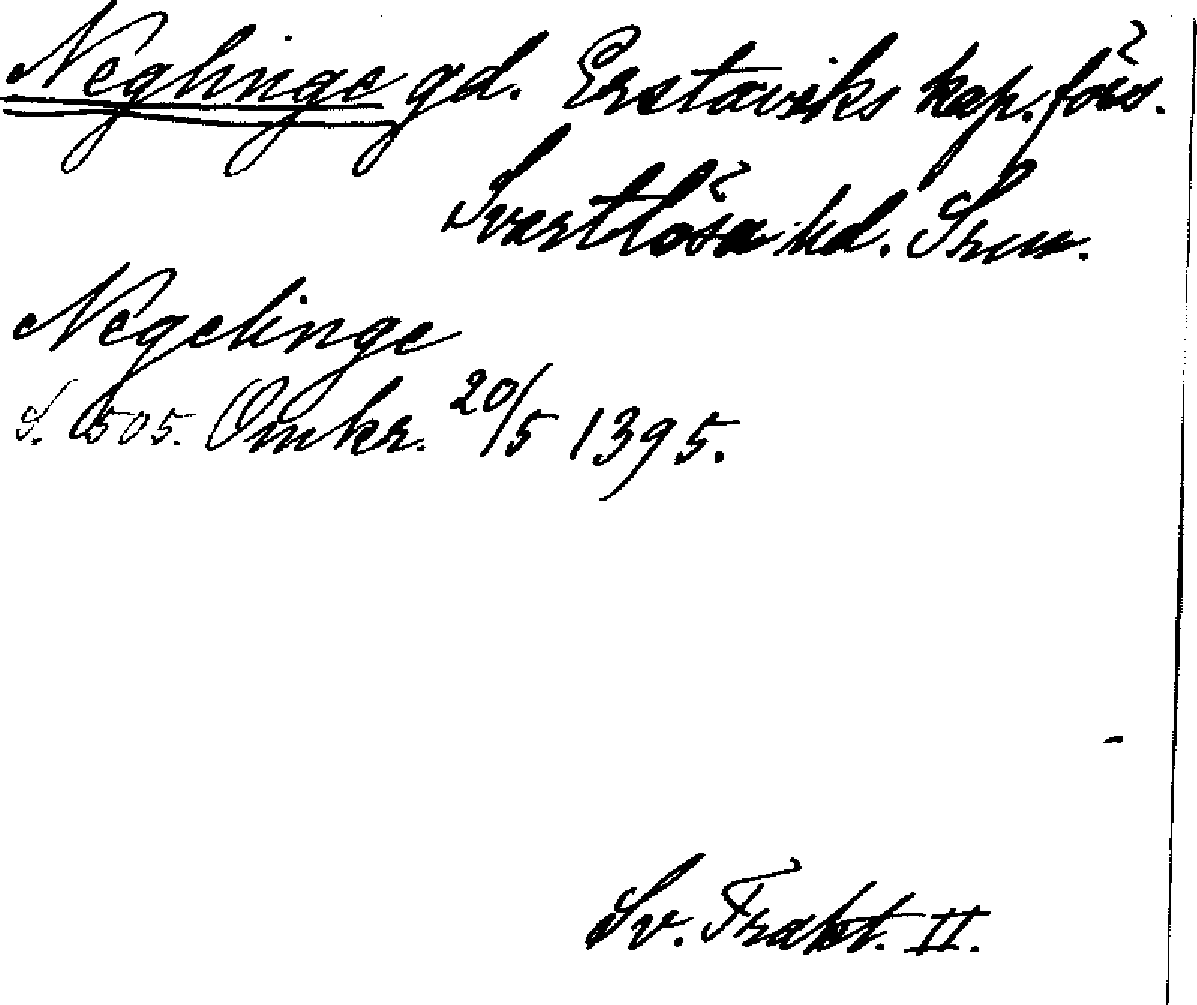 Neglinge gd. Erstaviks kap. förs.
Svartlösa hd. Srm.
Negelinge
S. 505. Omkr. 20/5 1395.
Sv. Trakt. II.